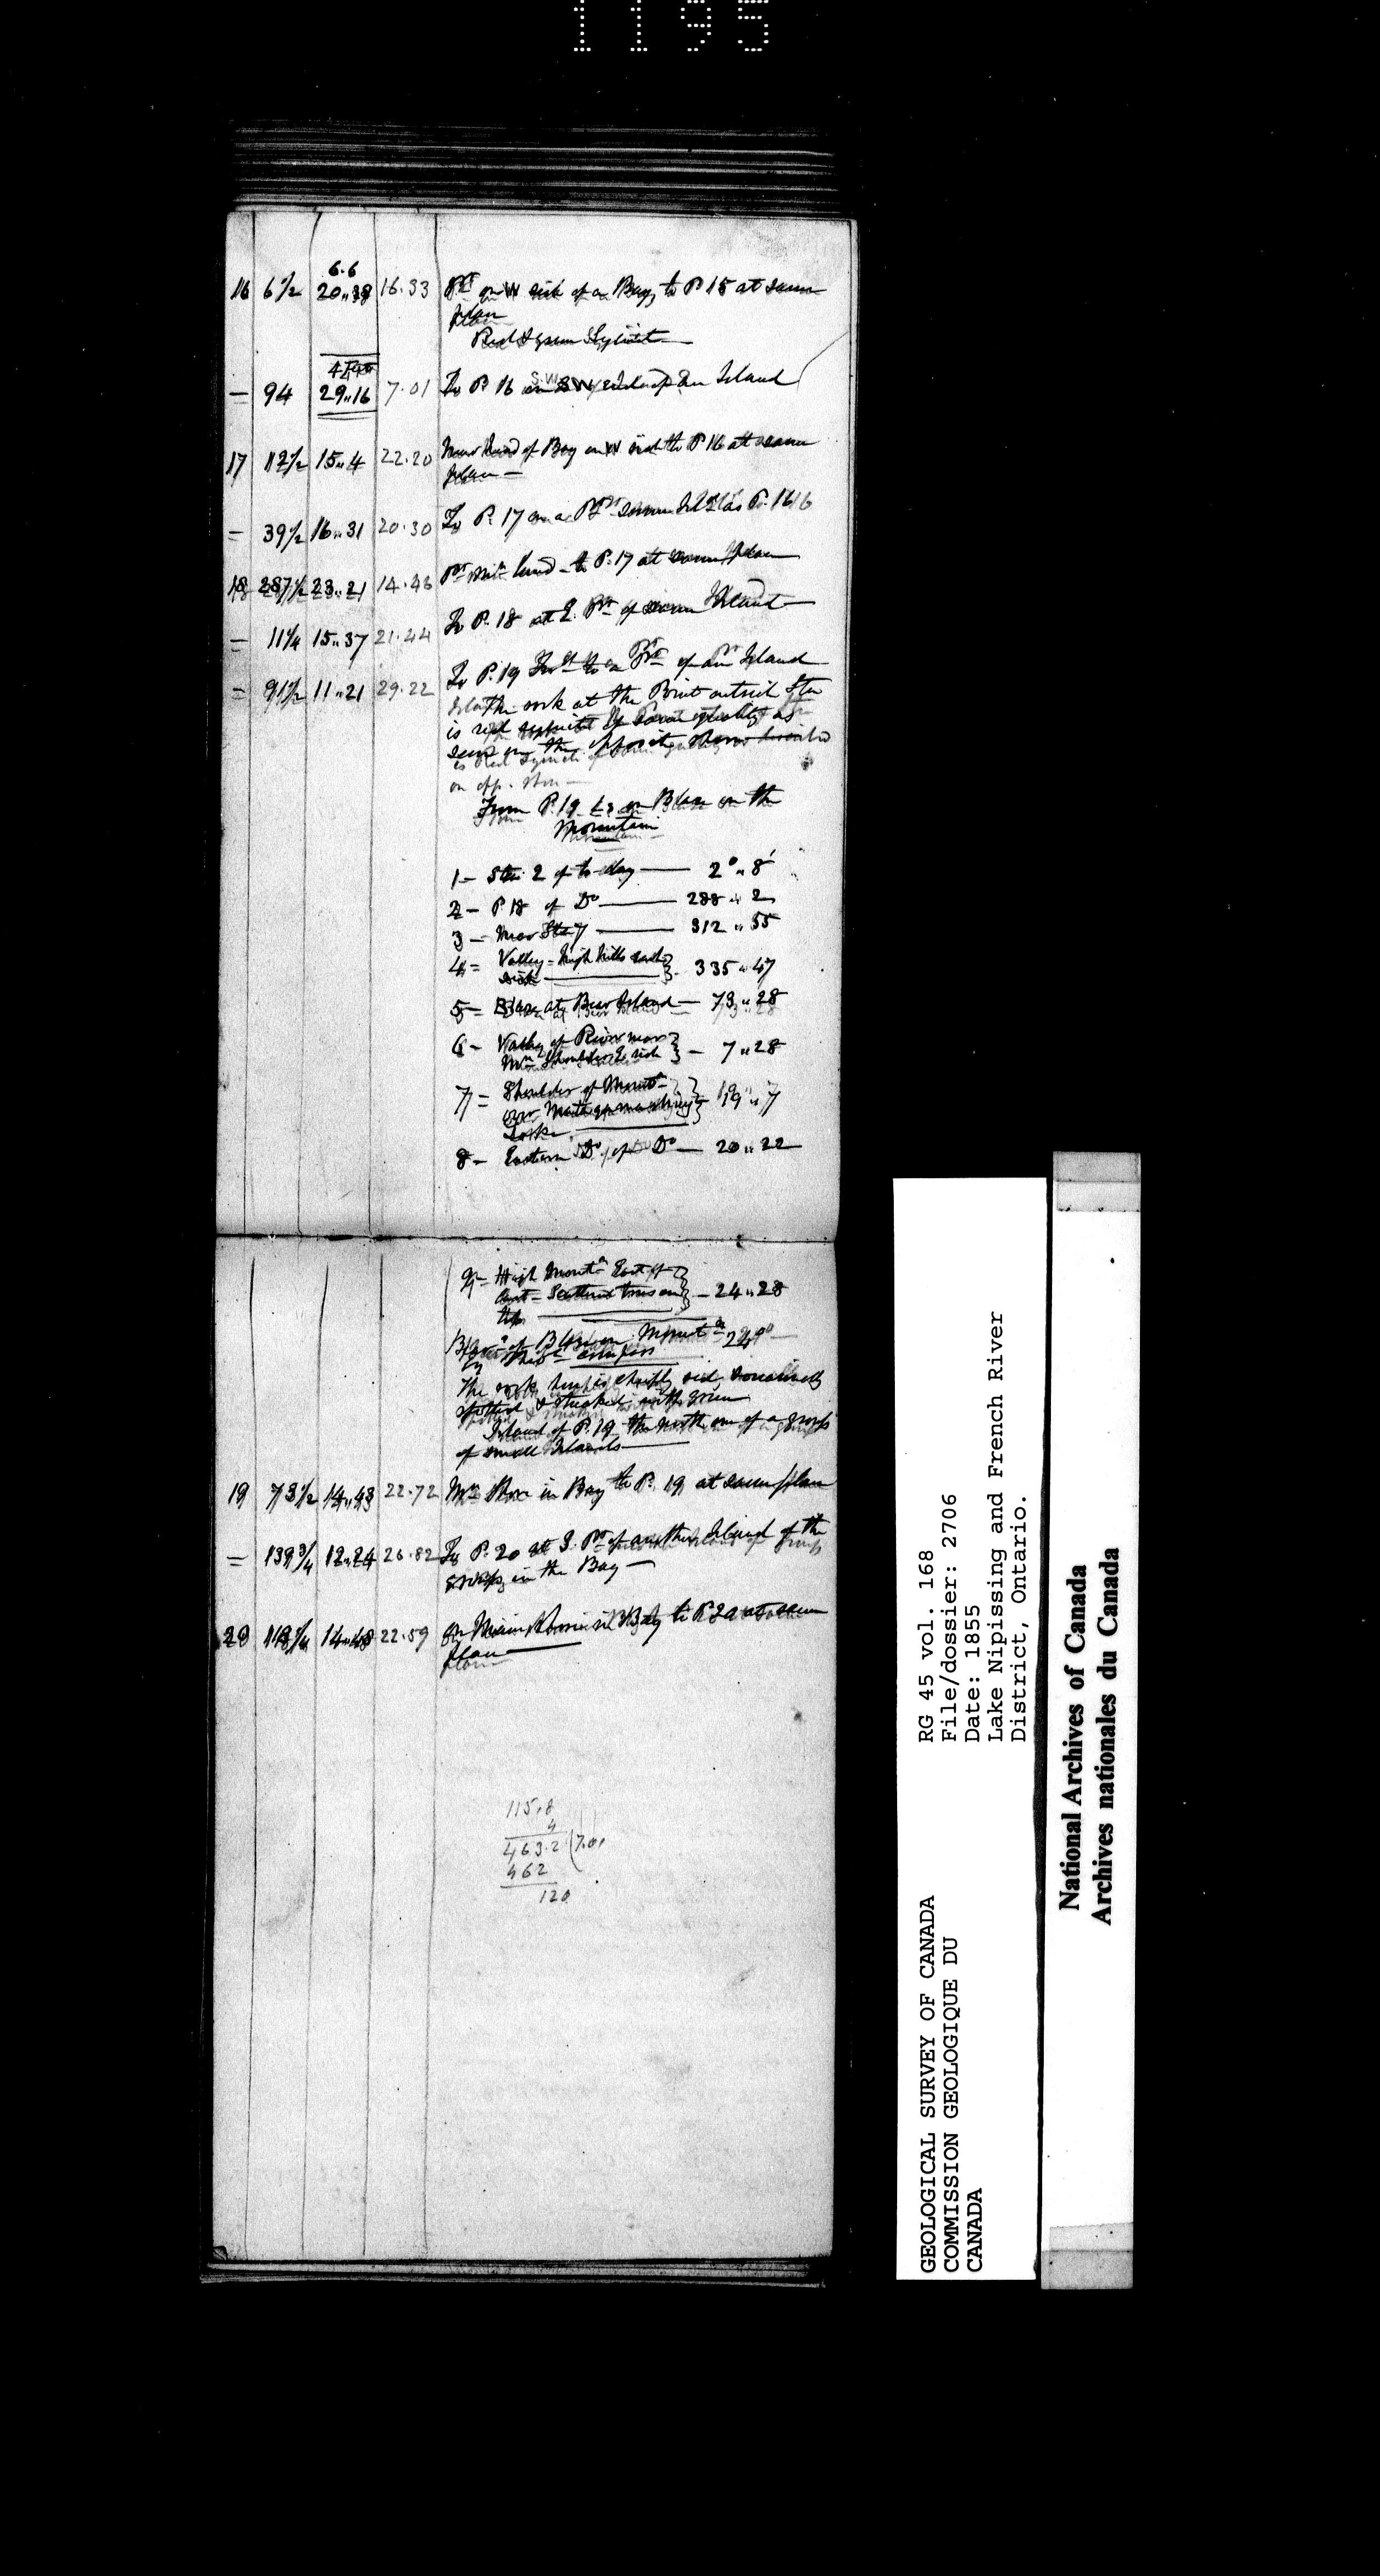 1195
6.6
16 6½ 20..38 16.33 Pt. on W side of a Bay, to P 15 at same
plan
Red & green Syenite
4 Feet
= 94 29..16 7.01 To P. 16 on SW side of an Island
17 12½ 15..4 22.20 Near head of Bay on W side to P 16 at same
plan
= 39½ 16..31 20.30 To P. 17 on a Pt. same Isld as P. 16
18 287½ 23..21 14.46 Pt. main land to P. 17 at same plan
= 11¼ 15..37 21.44 To P. 18 at E. Pt. of same Island
= 91½ 11..21 29.22 To P. 19 to a Pt. of an Island
The rock at the Point outside Stn
is red syenite of same quality as
seen on the opposite shore
on opp. shore
From P. 19 on Blaze on the
Mountain
1 = Stn. 2 of to-day — 2°..8'
2 — P 18 of Do — 288..2
3 = Near Stn 7 — 312..55
4 = Valley = high hills each
side } 335..47
5 = Blaze at Bear Island — 73..28
6 = Valley of River near
Mn. Shoulder E. side } — 7..28
7 = Shoulder of Mount
over
Lake } 19..7
8 — Eastern Do. of Do — 20..22
9 = High Mountn East of
Scattered trees on
top } — 24..28
of Mountn 24°
by compass
The rock here is chiefly red, occasionally
spotted & streaked with green
Island of P. 19 the North one of a group
of small Islands
19 73½ 14..43 22.72 Mn Shore in Bay to P. 19 at same plan
= 139¾ 12..24 26.82 To P. 20 at S. Pt. of another Island of the
group in the Bay —
20 118¼ 14..48 22.59 On Main Shore in Bay to P 20 at same
plan
115.8
4
463.2 (7.01
462
120
RG 45 vol. 168
File/dossier: 2706
Date: 1855
Lake Nipissing and French River
District, Ontario.
GEOLOGICAL SURVEY OF CANADA
COMMISSION GEOLOGIQUE DU
CANADA
National Archives of Canada
Archives nationales du Canada